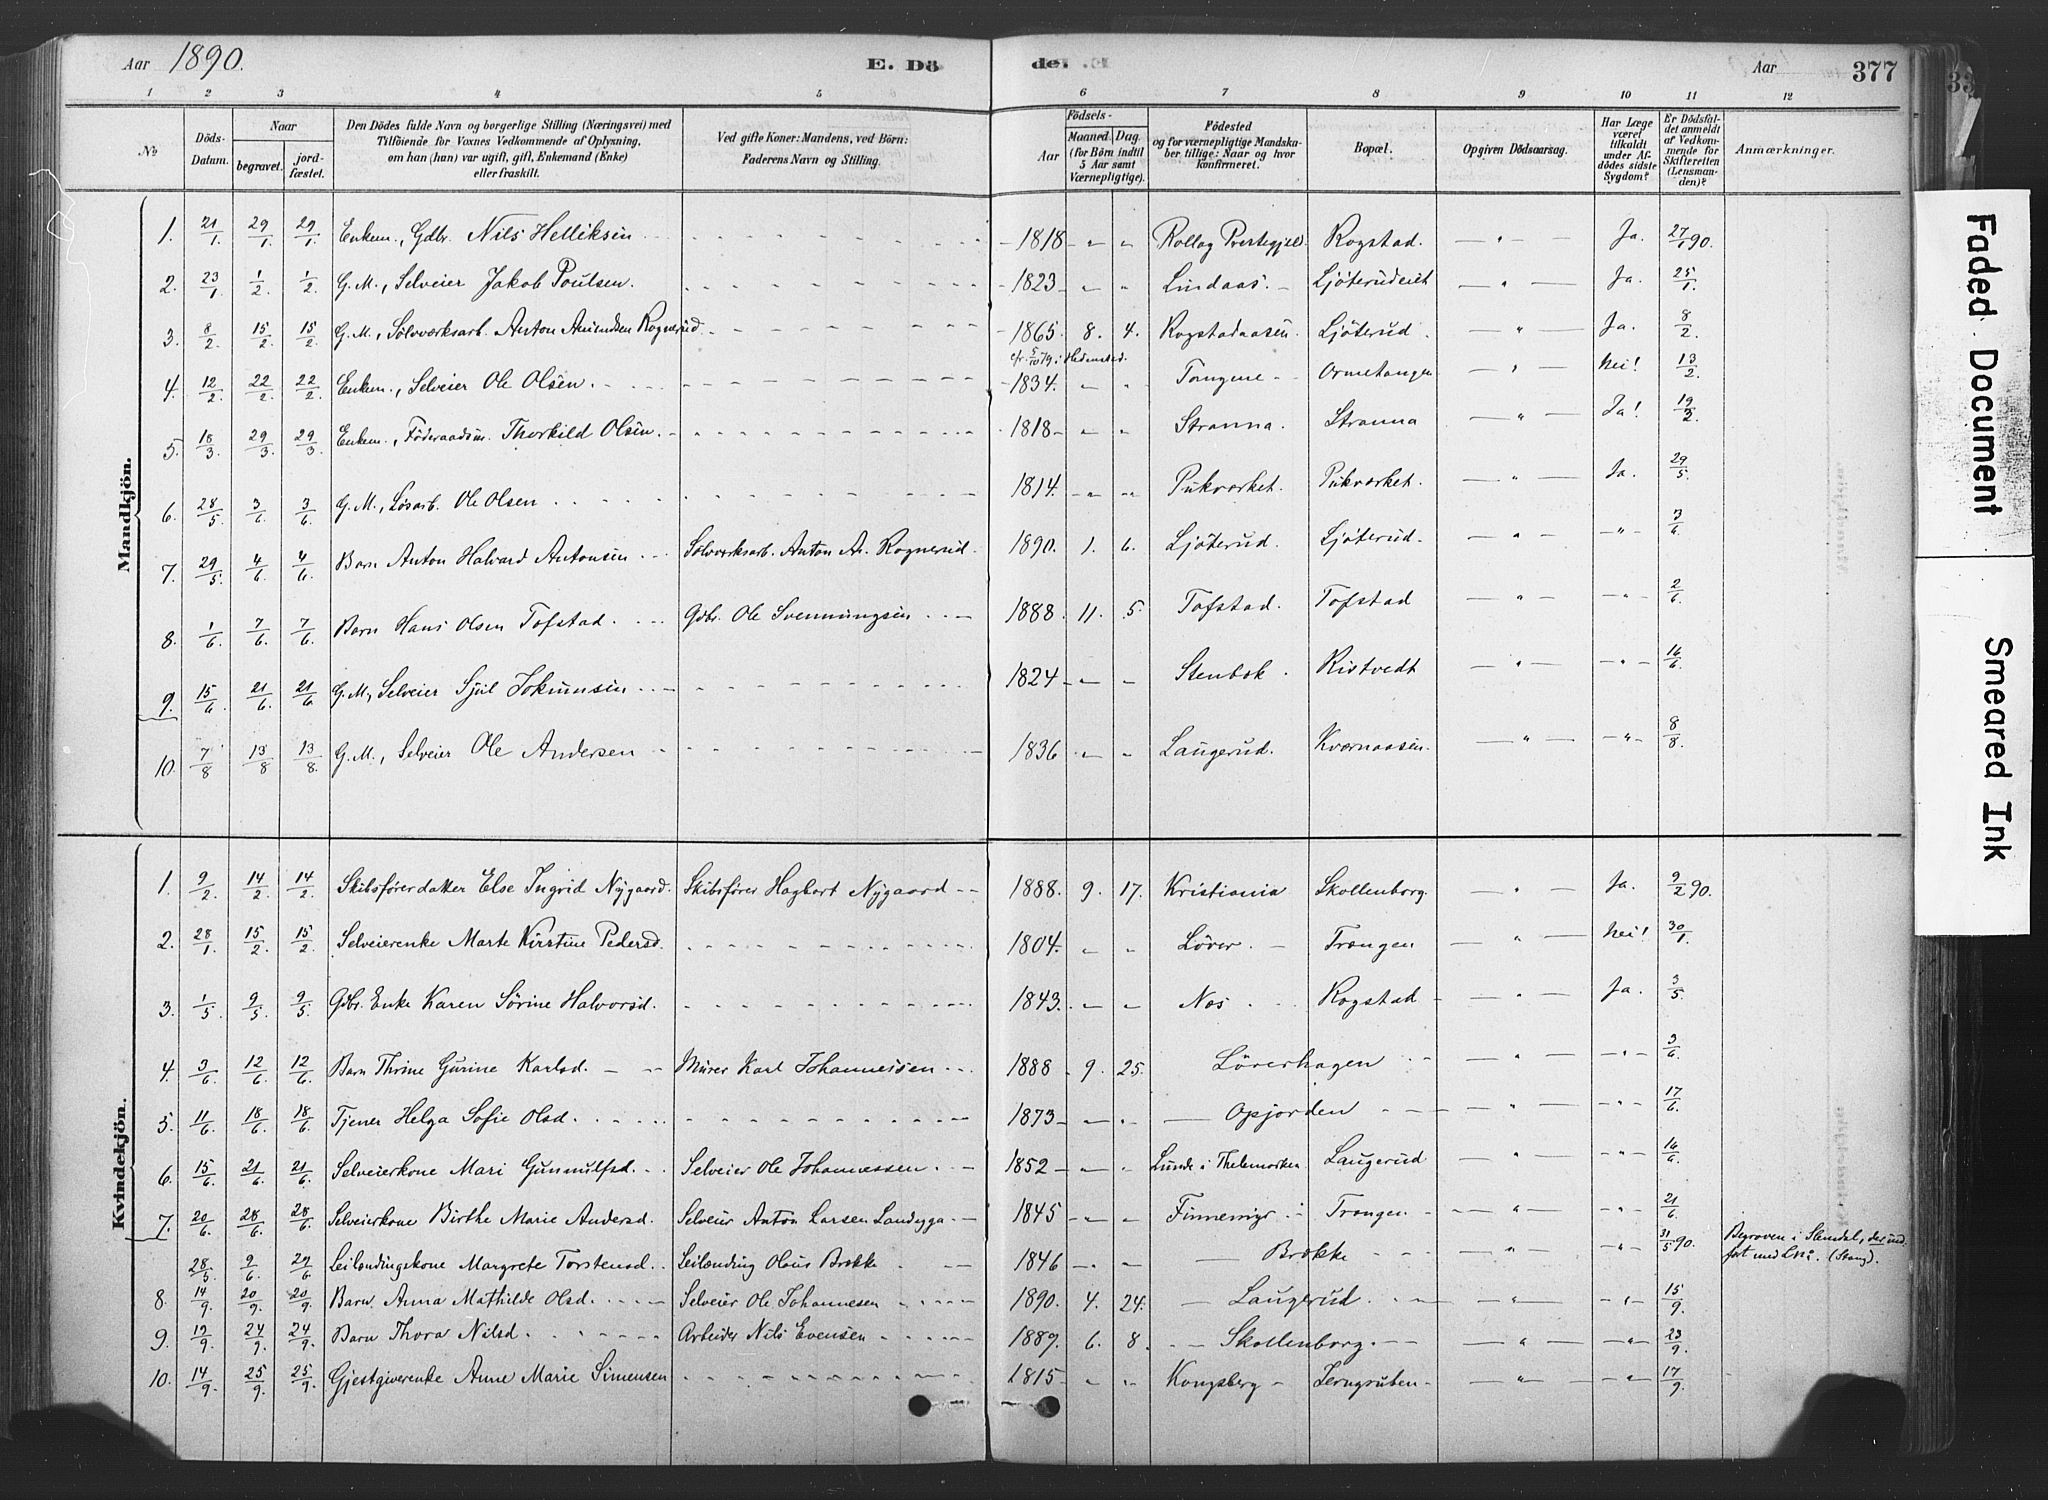 Aar 1890. E. Dö de. Aar 377
1 2 3 4 5 6 7 8 9 10 11 12
No Döds-Datum. Naar begravet. jordfæstet. Den Dödes fulde Navn og borgerlige Stilling (Næringsvei) med Tilföiende for Voxnes Vedkommende af Oplysning, om han (hun) var ugift, gift, Enkemand (Enke) eller fraskilt. Ved gifte Koner: Mandens, ved Börn: Faderens Navn og Stilling. Födsels- Aar Maaned Dag. (for Börn indtil 5 Aar samt Værnepligtige). Födested og for værnepligtige Mandskaber tillige: Naar og hvor konfirmeret. Bopæl. Opgiven Dödsaarsag. Har Læge været tilkaldt under Afdödes sidste Sygdom? Er Dödsfaldet anmeldt af Vedkommende for Skifteretten (Lensmanden)? Anmærkninger.
Mandkjön.
1. 21/1. 29/1. 29/1. Enkem., Gdbr. Nils Helliksen 1818 " " Rollag Prestegjeld. Rogstad. " Ja. 27/1 90.
2. 23/1 1/2. 1/2. G. M., Selveier Jakob Poulsen. 1823 " " Lindaas. Ljöterudeiet " Ja. 25/1.
3. 8/2 15/2. 15/2. G. M., Sölvværksarb. Anton Amundsen Rognerud 1865 8. 4. Rogstadaasen. Ljöterud. " Ja. 8/2
cfr. 5/10 79 i Hedenstad.
4. 12/2. 22/2 22/2 Enkem., Selveier Ole Olsen. 1834. " " Tangene Ormetangen " Nei! 13/2.
5. 18/3 29/3 29/3 Enkem., Föderaadsm. Thorkild Olsen. 1818 " " Stranna. Stranna " Ja! 19/3.
6. 28/5. 3/6 3/6. G. M., Løsarb. Ole Olsen. 1814. " " Pukværket. Pukværket. " Ja. 29/5.
7. 29/5. 4/6. 4/6. Barn Anton Halvard Antonsen Sølvværksarb. Anton A. Rognerud. 1890. 1. 6. Ljöterud. Ljöterud. " " 3/6
8. 1/6 7/6. 7/6 Barn Hans Olsen Tofstad. Gdbr. Ole Svenningsen 1888. 11. 5. Tofstad. Tofstad " " 2/6.
9. 15/6 21/6. 21/6 G. M., Selveier Sjul Jokumsen 1824 " " Stenbok. Ristvedt " " 16/6.
10. 7/8 13/8 13/8. G. M., Selveier Ole Andersen 1836 " " Laugerud. Kværnaasen. " " 8/8.
Kvindekjön.
1. 9/2. 14/2. 14/2 Skibsførerdatter Else Ingrid Nygaard. Skibsfører Hagbart Nygaard 1888. 9. 17. Kristiania Skollenborg. " Ja. 9/2 90.
2. 28/1. 15/2. 15/2 Selveierenke Marte Kirstine Pedersd. 1804. " " Löver. Trangen " Nei! 30/1.
3. 1/5. 9/5. 9/5. Gdbr. Enke Karen Sörine Halvorsd. 1843. " " Næs Rogstad " Ja. 3/5.
4. 3/6. 12/6. 12/6 Barn Thrine Gurine Karlsd. Murer Karl Johannessen 1888 9. 25. Löverhagen " " 3/6.
5. 11/6. 18/6. 18/6. Tjener Helga Sofie Olsd. 1873 " " Opjorden " " 17/6.
6. 15/6. 21/6. 21/6 Selveierkone Mari Gunnulfsd. Selveier Ole Johannessen. 1852 " " Lunde i Thelemarken Laugerud " " 16/6.
7. 20/6 28/6. 28/6. Selveierkone Birthe Marie Andersd. Selveier Anton Larsen 1845 " " Finnemyr Trangen " " 21/6.
28/5. 9/6 29/6 Leilændingskone Margrete Torstensd. Leilænding Olaus Brække 1846 " " Brække " " 31/5 90. Begraven i
8. 14/9. 20/9. 20/9. Barn Anna Mathilde Olsd. Selveier Ole Johannesen 1890. 4. 24. Laugerud " " 15/9.
9. 19/9. 24/9. 24/9. Barn Thora Nilsd. Arbeider Nils Evensen 1889. 6. 8. Skollenborg. " " 23/9.
10. 14/9. 25/9. 25/9. Gjestgiverenke Anne Marie Simensen 1815 " " Kongsberg Jerngruben " " 17/9.
Faded Document
Smeared Ink